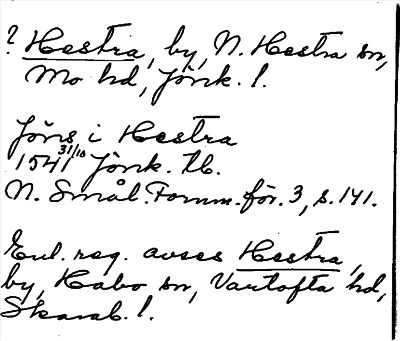 ? Hestra, by, N. Hestra sn,
Mo hd, Jönk. l.
Jöns i Hestra
1541 31/10 Jönk. tb.
N. Smål. Fornm.för. 3, s. 141.
Enl. reg. avses Hestra,
by, Habo sn, Vartofta hd,
Skarab. l.